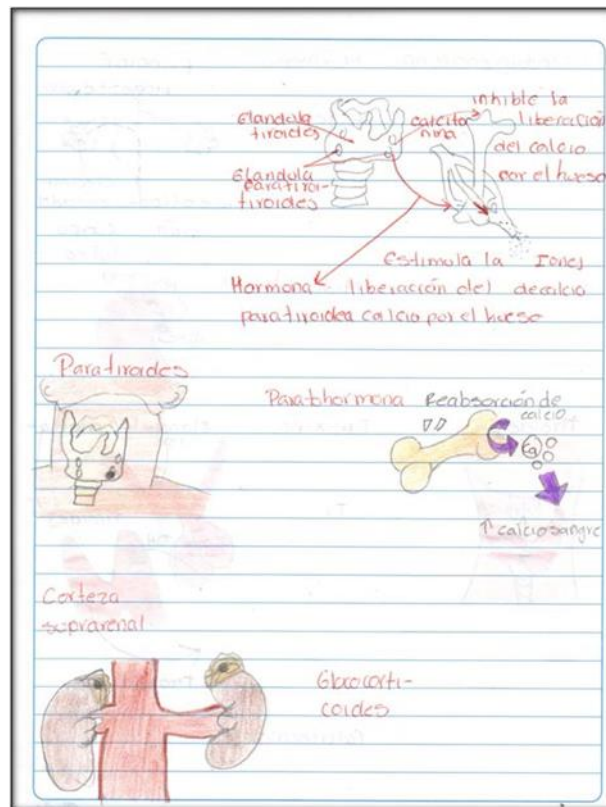 Glandula
tiroides
Glandula
paratiroi-
tiroides
calcito
nina
inhible la
liberación
del calcio
por el hueso
Estimula la
liberación del
calcio por el hueso
Iones
de calcio
Hormona
paratiroidea
Paratiroides
Paratohormona
Reabsorción de
calcio
↑ calcio sangre
Corteza
suprarenal
Glococorti-
coides